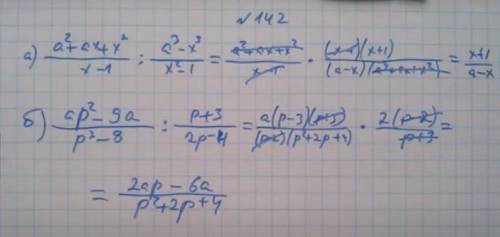 №142
а) (a²+ax+x²)/(x-1) : (a³-x³)/(x²-1) = (a²+ax+x²)/(x-1) · (x-1)(x+1)/((a-x)(a²+ax+x²)) = (x+1)/(a-x)
б) (ap²-9a)/(p³-8) : (p+3)/(2p-4) = a(p-3)(p+3)/((p-2)(p²+2p+4)) · 2(p-2)/(p+3) =
= (2ap-6a)/(p²+2p+4)